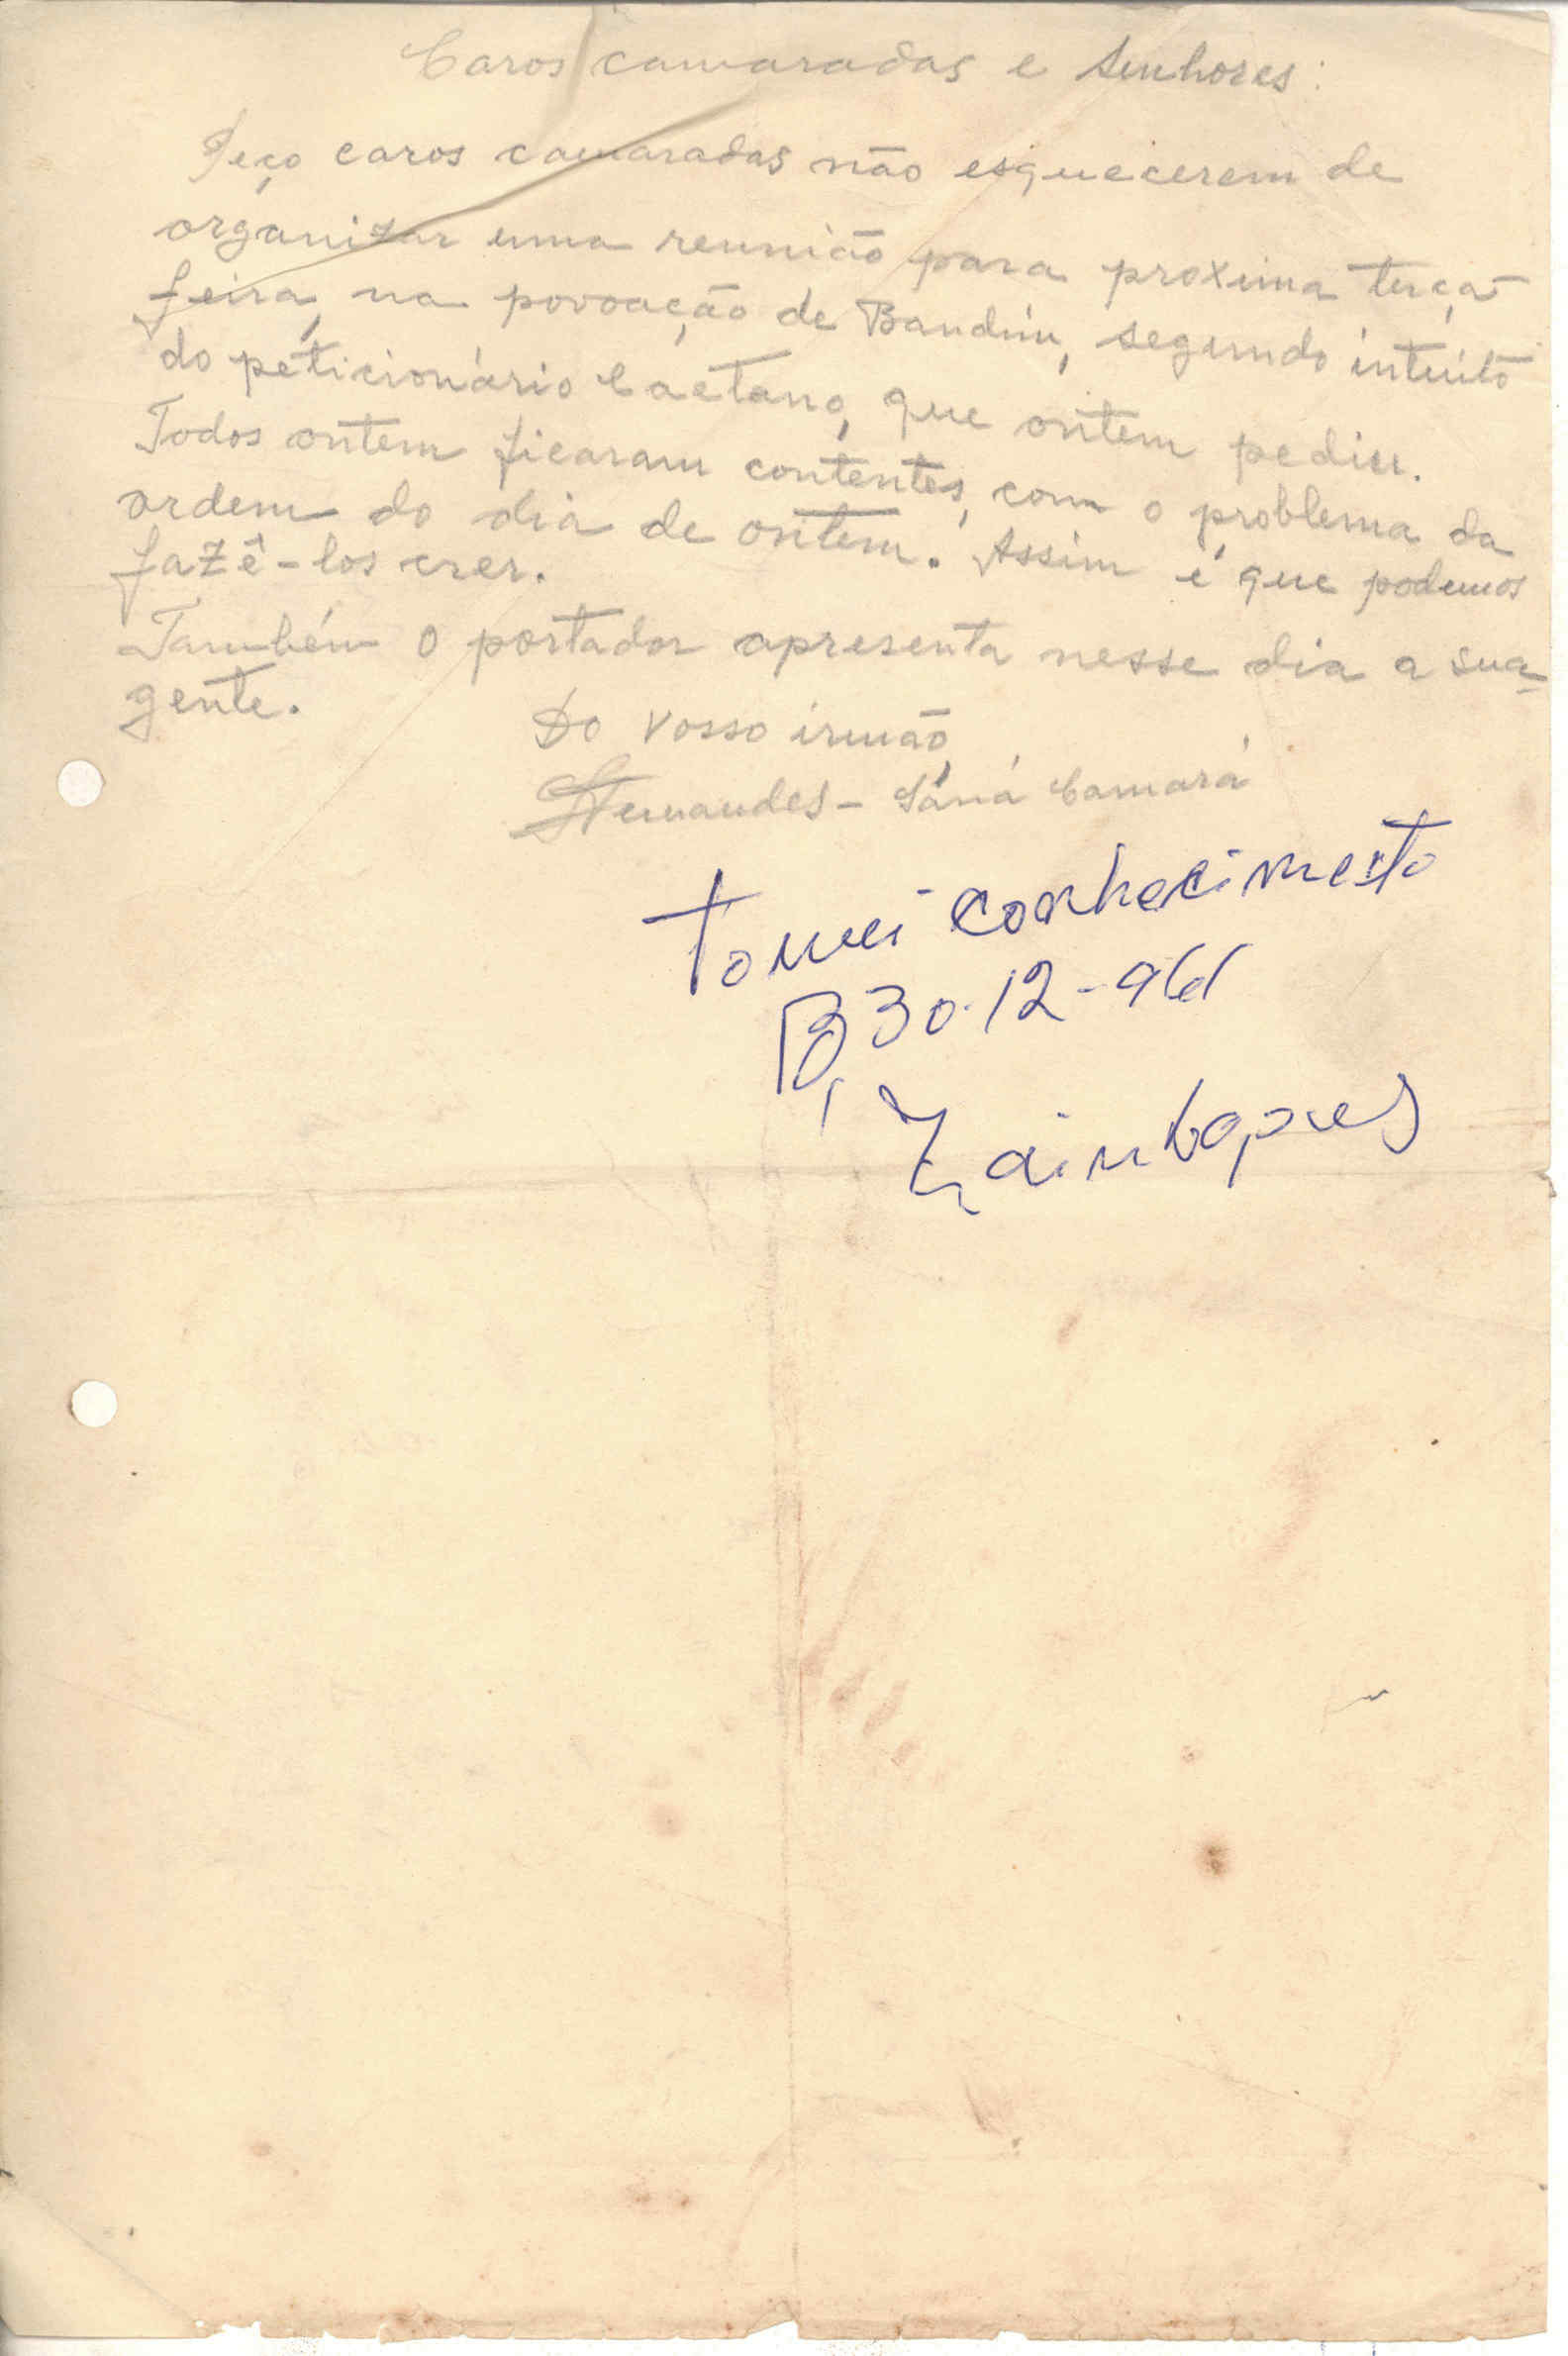 Caros camaradas e Senhores:
Peço caros camaradas não esquecerem de
organizar uma reunião para proxima terça-
feira, na povoação de Bandim, segundo intuito
do peticionário Caetano, que ontem pediu.
Todos ontem ficaram contentes, com o problema da
ordem do dia de ontem. Assim é que podemos
fazê-los crer.
Também o portador apresenta nesse dia a sua
gente.
Do vosso irmão,
Fernandes - Saná Camará
Tomei conhecimento
30-12-961
Zain Lopes